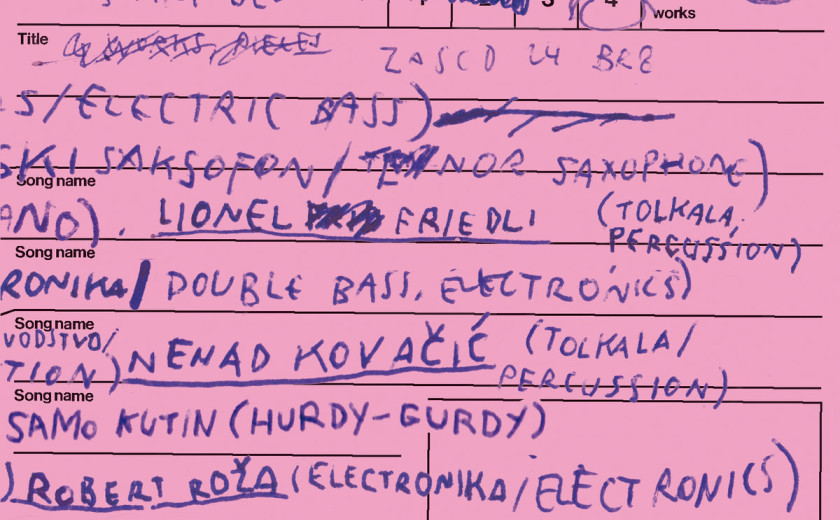 works
Title ZASCD 24 BRE
S/ELECTRIC BASS)
SKI SAKSOFON / TENOR SAXOPHONE)
Song name
ANO), LIONEL FRIEDLI (TOLKALA,
PERCUSSION)
Song name
RONIKA/ DOUBLE BASS, ELECTRONICS)
Song name
VODSTVO/
TION) NENAD KOVAČIĆ (TOLKALA/
PERCUSSION)
Song name
SAMO KUTIN (HURDY-GURDY)
) ROBERT ROŽA (ELECTRONIKA/ELECTRONICS)